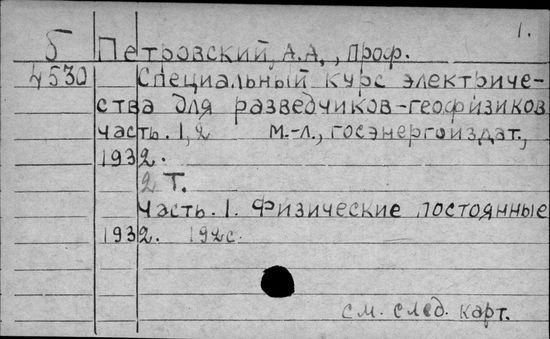 1.
Б Петровский, А.А., проф.
4530 Специальный курс электриче-
ства для разведчиков-геофизиков
часть. 1,2 М.-Л., госэнергоиздат,
1932.
2 т.
Часть. 1. Физические постоянные
1932. 192с.
см. след. карт.